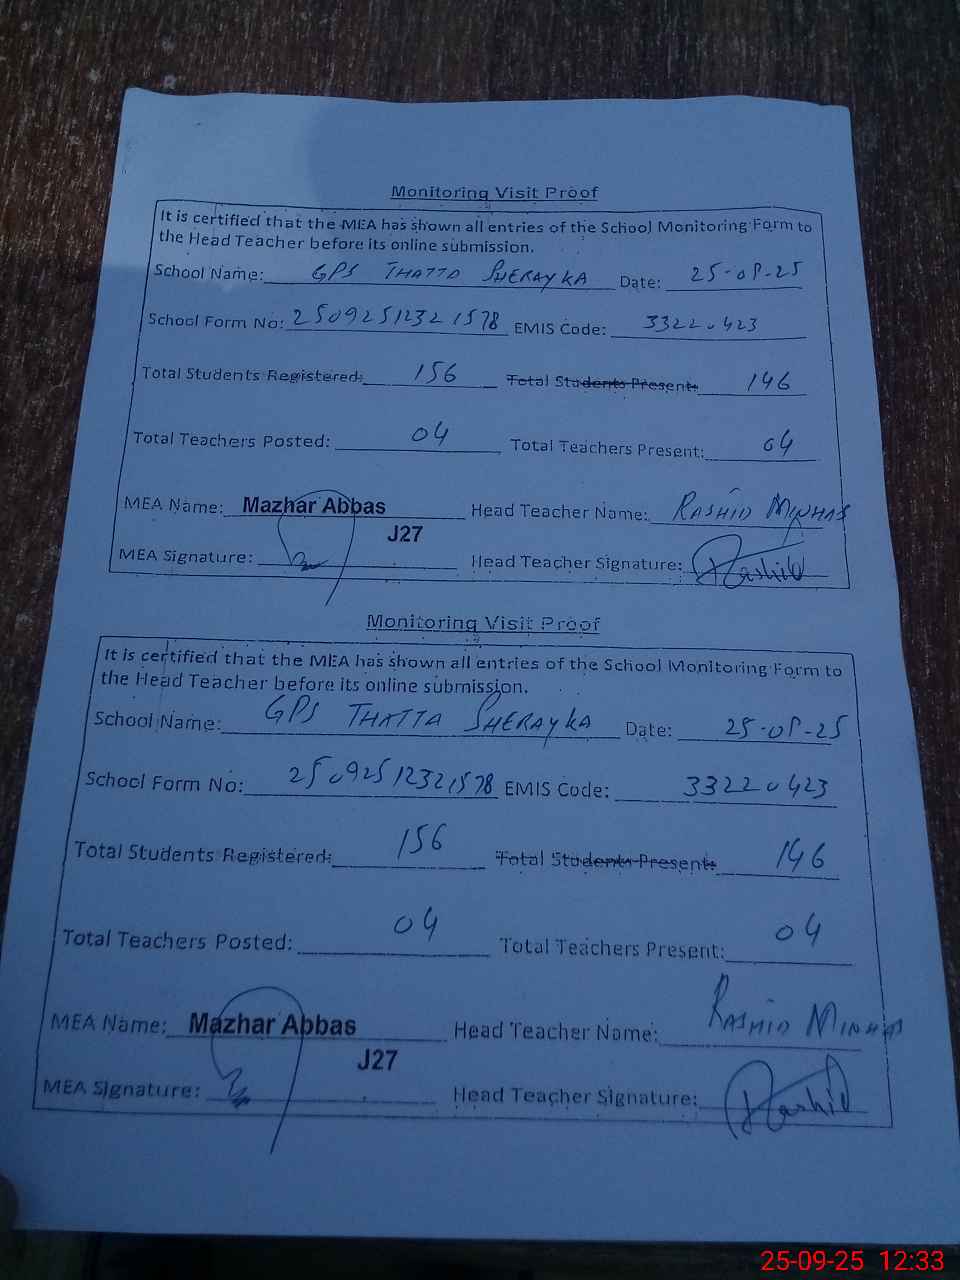 Monitoring Visit Proof
It is certified that the MEA has shown all entries of the School Monitoring Form to
the Head Teacher before its online submission.
School Name: GPS THATTA SHERAYKA Date: 25-09-25
School Form No: 25092512321578 EMIS Code: 33220423
Total Students Registered: 156 Total Students Present: 146
Total Teachers Posted: 04 Total Teachers Present: 04
MEA Name: Mazhar Abbas Head Teacher Name: RASHID MINHAS
J27
MEA Signature: Head Teacher Signature: Rashid
Monitoring Visit Proof
It is certified that the MEA has shown all entries of the School Monitoring Form to
the Head Teacher before its online submission.
School Name: GPS THATTA SHERAYKA Date: 25-09-25
School Form No: 25092512321578 EMIS Code: 33220423
Total Students Registered: 156 Total Students Present: 146
Total Teachers Posted: 04 Total Teachers Present: 04
MEA Name: Mazhar Abbas Head Teacher Name: RASHID MINHAS
J27
MEA Signature: Head Teacher Signature: Rashid
25-09-25 12:33